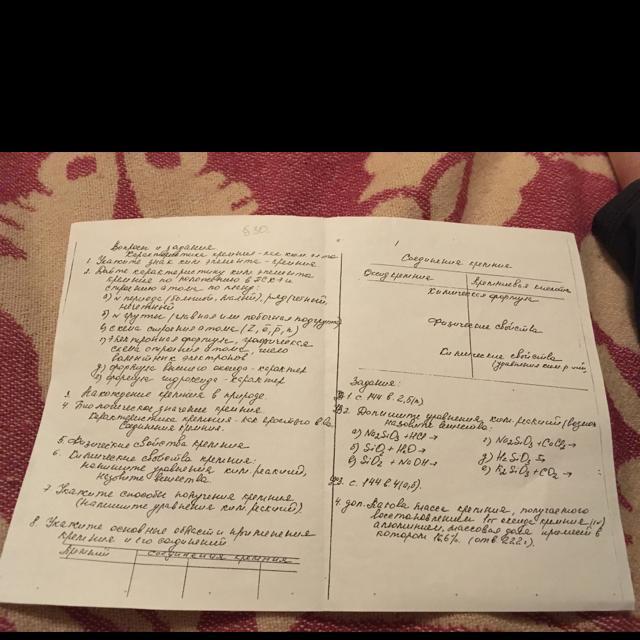 §30.
Вопросы и задания
Характеристика кремния - как хим. эл-та
1. Укажите знак хим. элемента - кремния
2. Дайте характеристику хим. элемента
кремния по положению в ПСХЭ и
строению атома по плану:
а) N периода (большой, малый), ряд (четный,
нечетный)
б) N группы (главная или побочная подгруппа)
в) схема строения атома (Z, e, p, n)
г) электронная формула, графическая
схема строения атома, число
валентных электронов
д) формула высшего оксида - характер
е) формула гидроксида - характер
3. Нахождение кремния в природе.
4. Биологическое значение кремния
Характеристика кремния - как простого в-ва
Соединения кремния.
5. Физические свойства кремния
6. Химические свойства кремния:
напишите уравнения хим. реакций,
назовите вещества
7. Укажите способы получения кремния
(напишите уравнения хим. реакций)
8. Укажите основные области применения
кремния и его соединений
Кремний Соединения кремния
1
Соединения кремния
Оксид кремния Кремниевая кислота
Химическая формула
Физические свойства
Химические свойства
(уравнения хим. р-ий)
Задания:
1. с. 144 в. 2,5(п)
2. Допишите уравнения хим. реакций
назовите вещества:
а) Na2SiO3 + HCl →
б) SiO2 + H2O →
в) SiO2 + NaOH →
г) Na2SiO3 + CaCl2 →
д) H2SiO3 →
е) K2SiO3 + CO2 →
3. с. 144 в 4(а,б).
4. доп. Какова масса кремния, полученного
восстановлением оксида кремния (IV)
алюминием, массовая доля примесей в
котором 16,6%. (отв 222г).